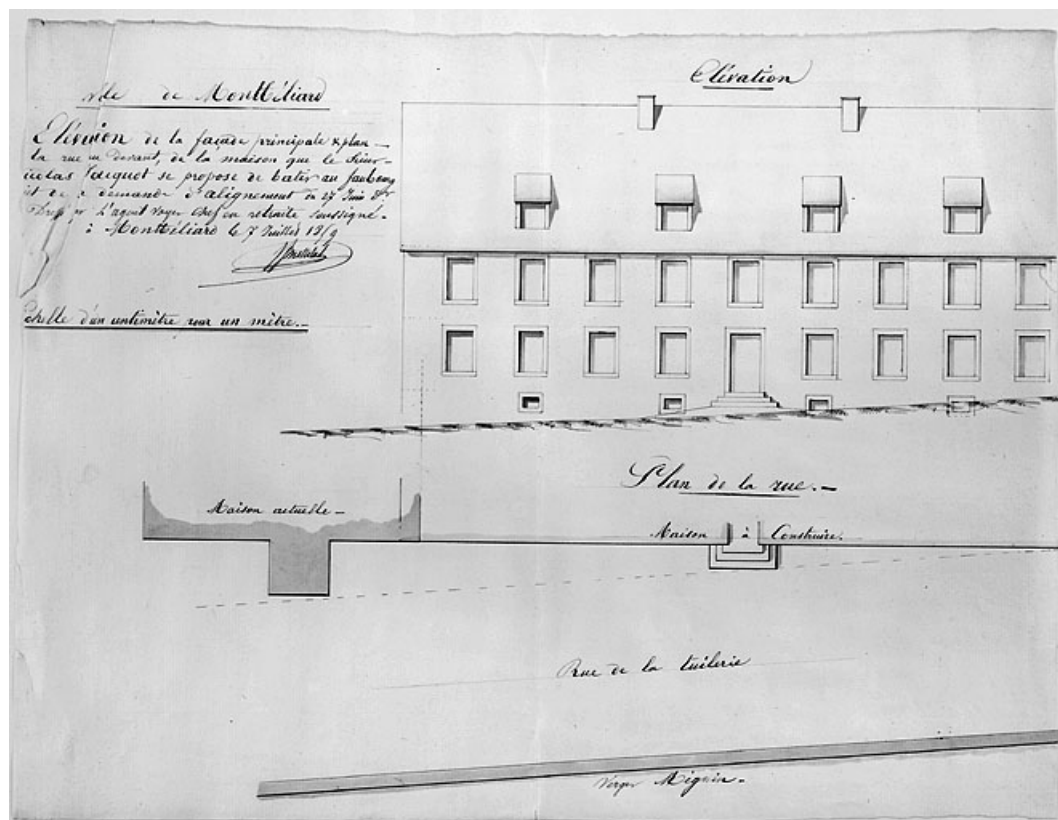 ville de Montbéliard
Elévation de la façade principale & plan
la rue au devant, de la maison que le Sieur
icolas Jacquot se propose de batir au faubourg
et de demande d'alignement du 27 Juin
Dressé par L'agent voyer chef en retraite soussigné.
à Montbéliard le 7 Juillet
Echelle d'un centimètre pour un mètre.
Elévation
Plan de la rue.
Maison actuelle
Maison à Construire.
Rue de la tuilerie
Verger Mégnin.